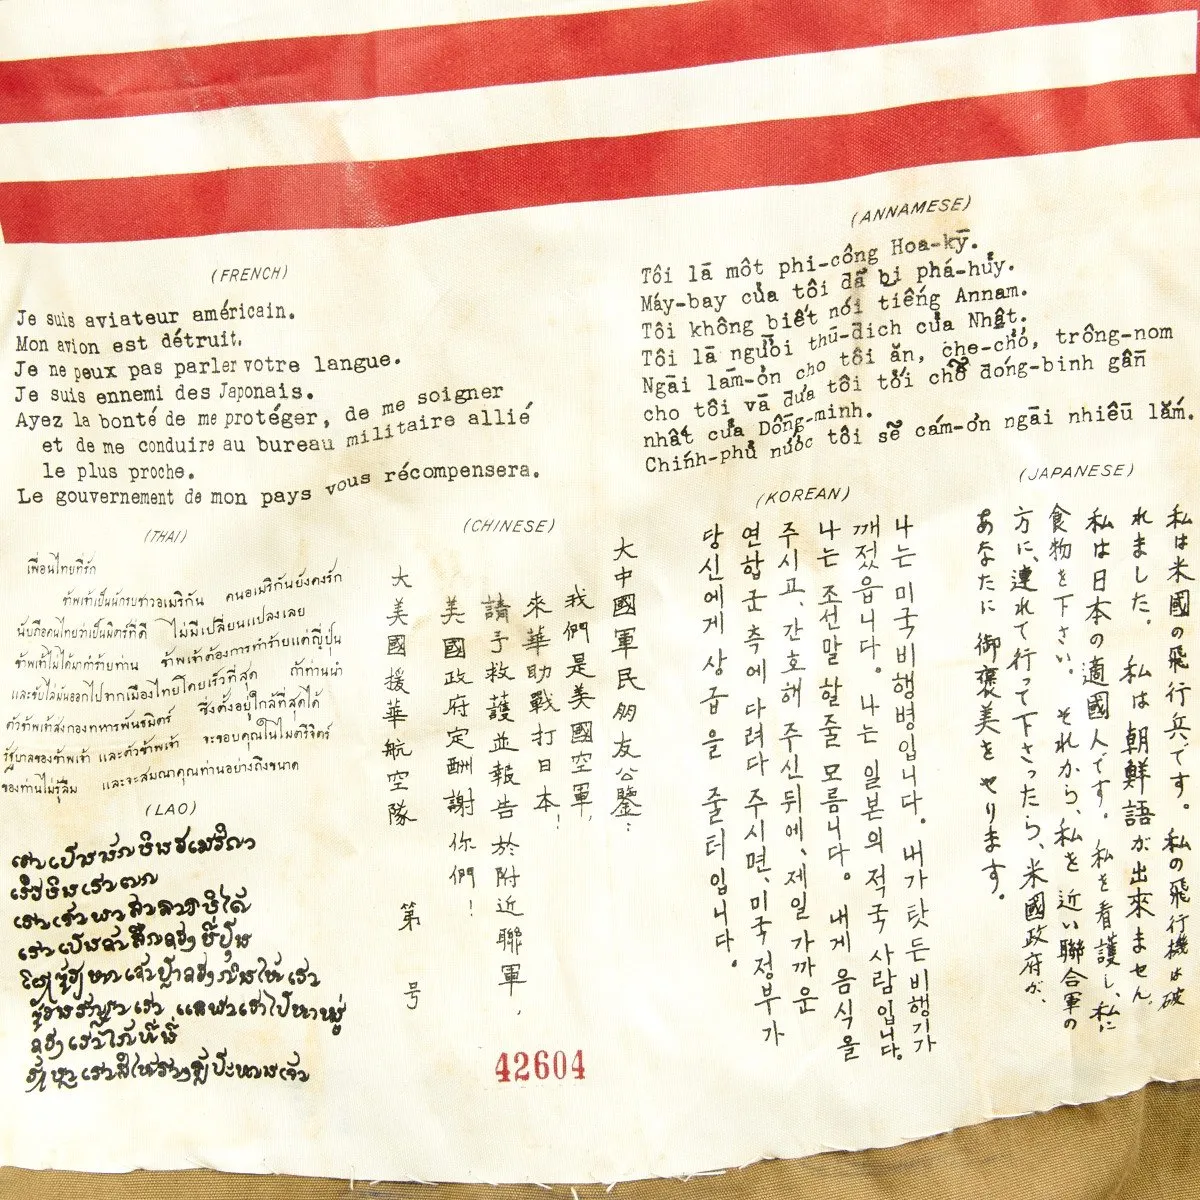 (FRENCH)
Je suis aviateur américain.
Mon avion est détruit.
Je ne peux pas parler votre langue.
Je suis ennemi des Japonais.
Ayez la bonté de me protéger, de me soigner
et de me conduire au bureau militaire allié
le plus proche.
Le gouvernement de mon pays vous récompensera.
(ANNAMESE)
Tôi là một phi-công Hoa-kỳ.
Máy-bay của tôi đã bị phá-hủy.
Tôi không biết nói tiếng Annam.
Tôi là người thù-địch của Nhật.
Ngài làm-ơn cho tôi ăn, che-chở, trông-nom
cho tôi và đưa tôi tới chỗ đóng-binh gần
nhất của Đồng-minh.
Chính-phủ nước tôi sẽ cám-ơn ngài nhiều lắm.
(THAI)
เพื่อนไทยที่รัก
ข้าพเจ้าเป็นนักรบชาวอเมริกัน คนอเมริกันยังคงรัก
นับถือคนไทยว่าเป็นมิตรที่ดี ไม่มีเปลี่ยนแปลงเลย
ข้าพเจ้าไม่ได้มาทำร้ายท่าน ข้าพเจ้าต้องการทำร้ายแต่ญี่ปุ่น
และขับไล่มันออกไปจากเมืองไทยโดยเร็วที่สุด ถ้าท่านนำ
ตัวข้าพเจ้าส่งกองทหารพันธมิตร์ ซึ่งตั้งอยู่ใกล้ที่สุดได้
รัฐบาลของข้าพเจ้า และตัวข้าพเจ้า จะขอบคุณในไมตรีจิตร์
ของท่านไม่รู้ลืม และจะสมณาคุณท่านอย่างถึงขนาด
(LAO)
(CHINESE)
大中國軍民朋友公鑒:
我們是美國空軍,
來華助戰打日本!
請予救護並報告於附近聯軍,
美國政府定酬謝你們!
大美國援華航空隊 第 号
42604
(KOREAN)
나는 미국비행병입니다. 내가 탓든 비행기가
깨젓읍니다. 나는 일본의 적국 사람입니다.
나는 조선말 할줄 모릅니다. 내게 음식을
주시고, 간호해 주신뒤에, 제일 가까운
연합군 측에 다려다 주시면, 미국 정부가
당신에게 상급을 줄터입니다.
(JAPANESE)
私は米國の飛行兵です。私の飛行機は破
れました。私は朝鮮語が出來ません。
私は日本の適國人です。私を看護し、私に
食物を下さい。それから、私を近い聯合軍の
方に、連れて行って下さったら、米國政府が、
あなたに御褒美をやります。